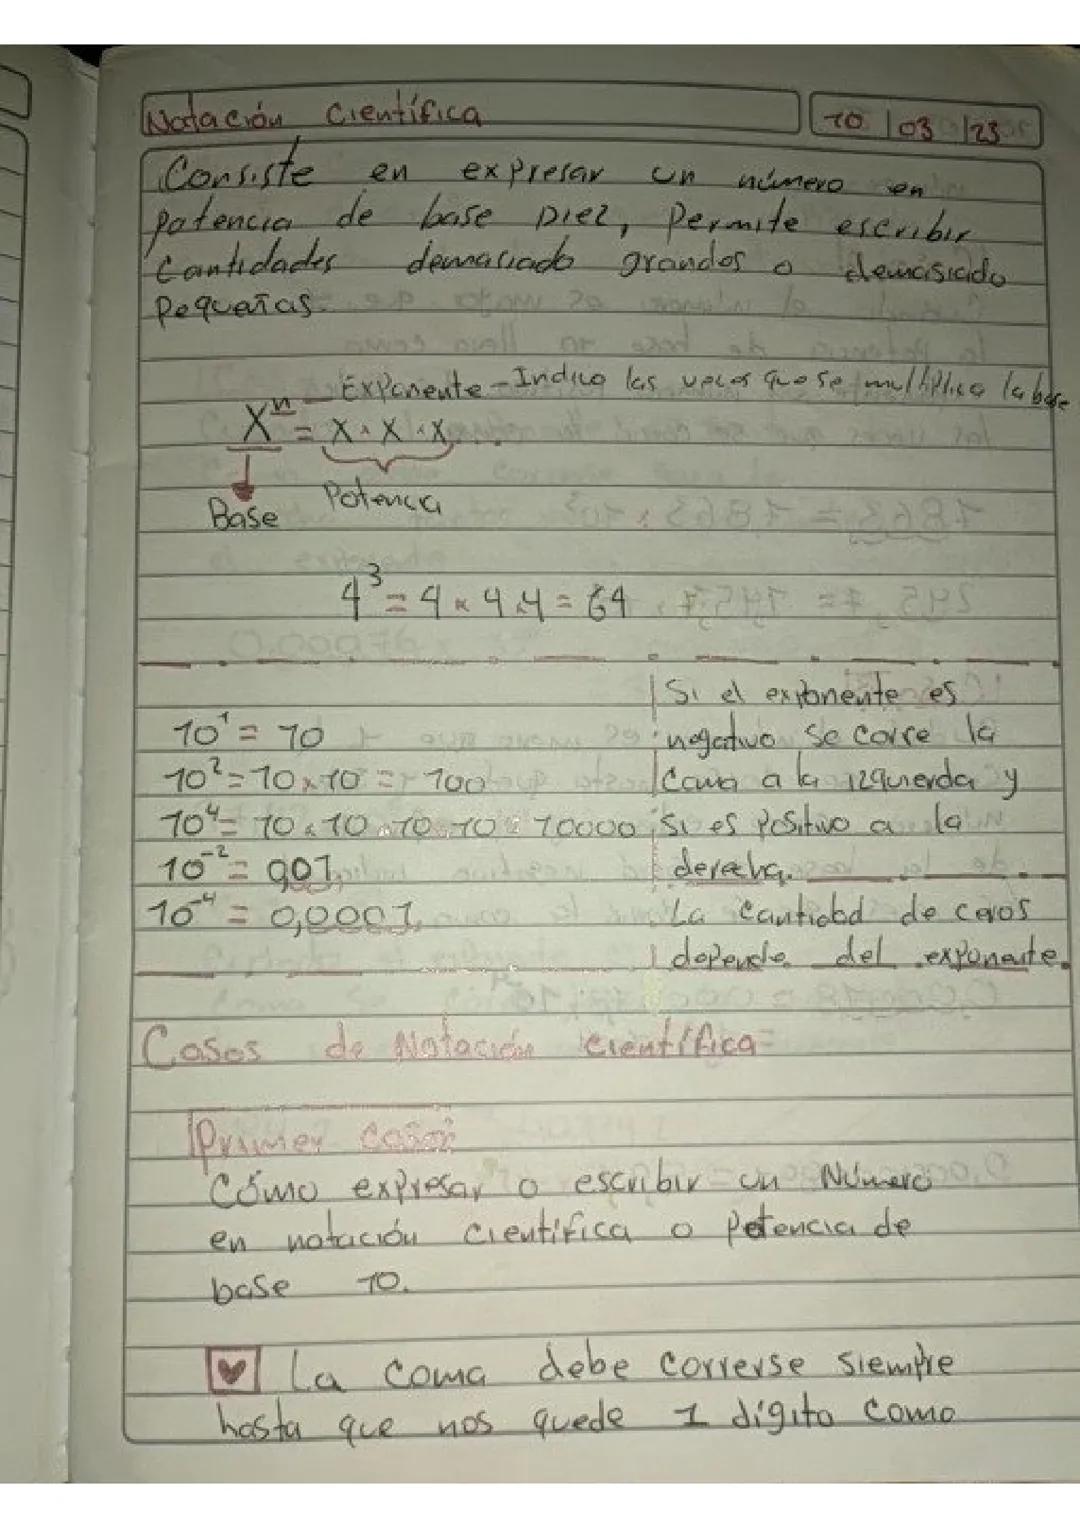 Notación Científica 10/03/23
Consiste en expresar un número en
potencia de base Diez, Permite escribir
Cantidades demasiado grandes o demasiado
Pequeñas.
Exponente - Indica las veces que se multiplica la base
Xⁿ = X × X × X
Base Potencia
4³ = 4 × 4 × 4 = 64
10¹ = 10
10² = 10 × 10 = 100
10⁴ = 10 × 10 × 10 × 10 = 10000
10⁻² = 0,01
10⁻⁴ = 0,0001
Si el exponente es
negativo se corre la
Coma a la izquierda y
si es Positivo a la
derecha.
La Cantidad de ceros
depende del exponente.
Casos de Notación Científica
Primer Caso:
Cómo expresar o escribir un Número
en notación Científica o Potencia de
base 10.
La coma debe correrse siempre
hasta que nos quede 1 dígito como